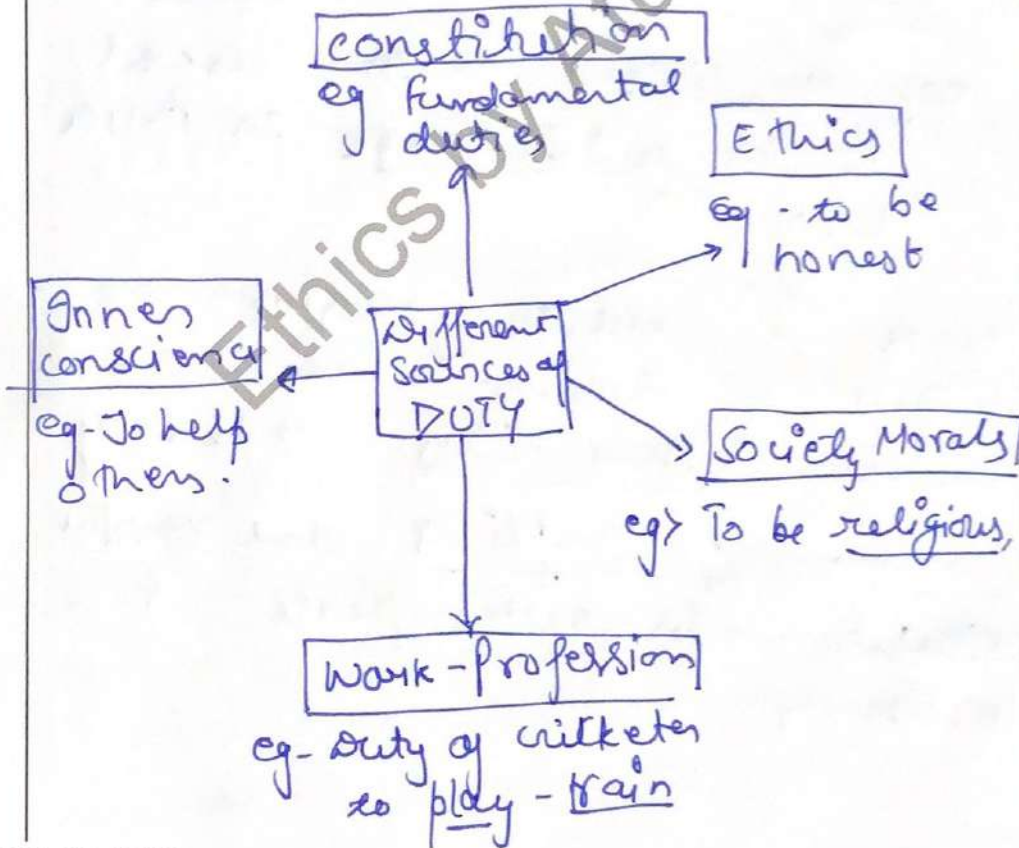 Constitution
eg fundamental
duties
Ethics
eg - to be
honest
Inner
conscience
eg - To help
others.
Different
Sources of
DUTY
Society Morals
eg> To be religious,
Work - Profession
eg - Duty of cricketer
to play - train
Ethics by